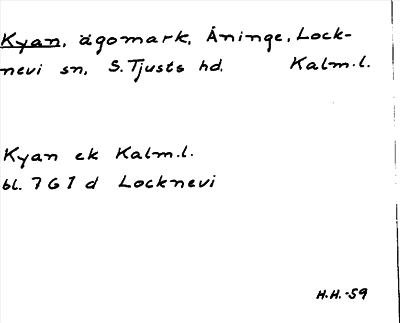 Kyan, ägomark, Åninge, Lock-
nevi sn, S. Tjusts hd. Kalm.l.
Kyan ek Kalm.l.
bl. 7 G 7 d Locknevi
H.H.-59